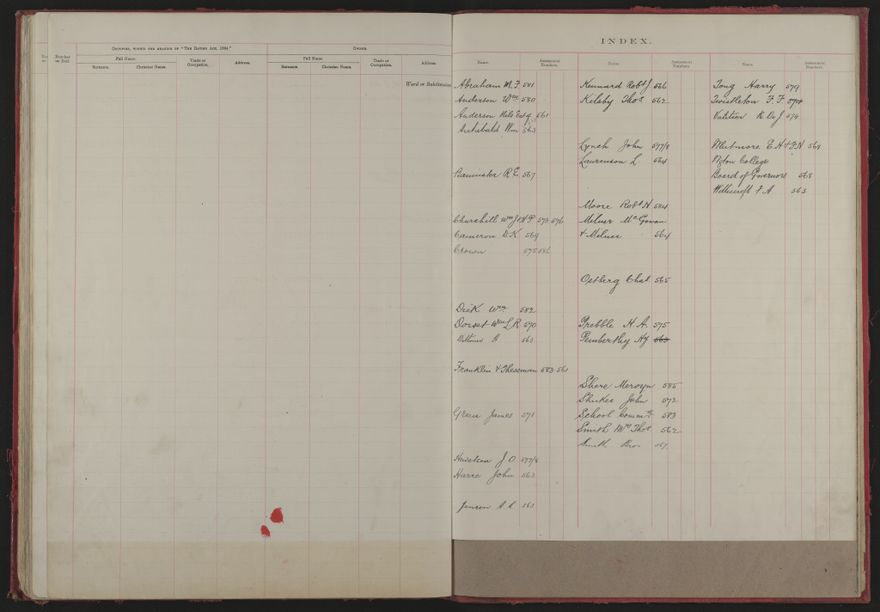 Occupier, within the meaning of "The Rating Act, 1894."
Owner.
Number on Roll.
Full Name.
Surname.
Christian Name.
Trade or Occupation.
Address.
Full Name.
Surname.
Christian Name.
Trade or Occupation.
Address.
Ward or Subdivision
INDEX.
Name.
Assessment Numbers.
Name.
Assessment Numbers.
Name.
Assessment Numbers.
Abraham W. F 581
Anderson Wm 580
Anderson 561
Archibald Wm 563
R E. 567
Churchill Wm J & H P 573 576
Cameron D. K. 569
Crown 575
Dick Wm 582
Dorset Wm L R 570
563
Franklin & 583 561
Green James 571
J. O. 577/8
Harre John 563
Jensen A. 561
Kennard Robt J 566
Kilsby Thos 562
Lynch John 577/8
Laurenson L 564
Moore Robt H 584
Milner McGowan
& Milner 564
Ostberg Chas 565
Prebble H. A. 575
Pemberthy 563
Shere Mervyn 585
Shukee John 572
School Commrs 583
Smith Wm Thos 562
Smith Bros 567
Tong Harry 579
Twistleton F. F. 574
574
E. H & P. H 561
College
Board of Governors 568
F A 563